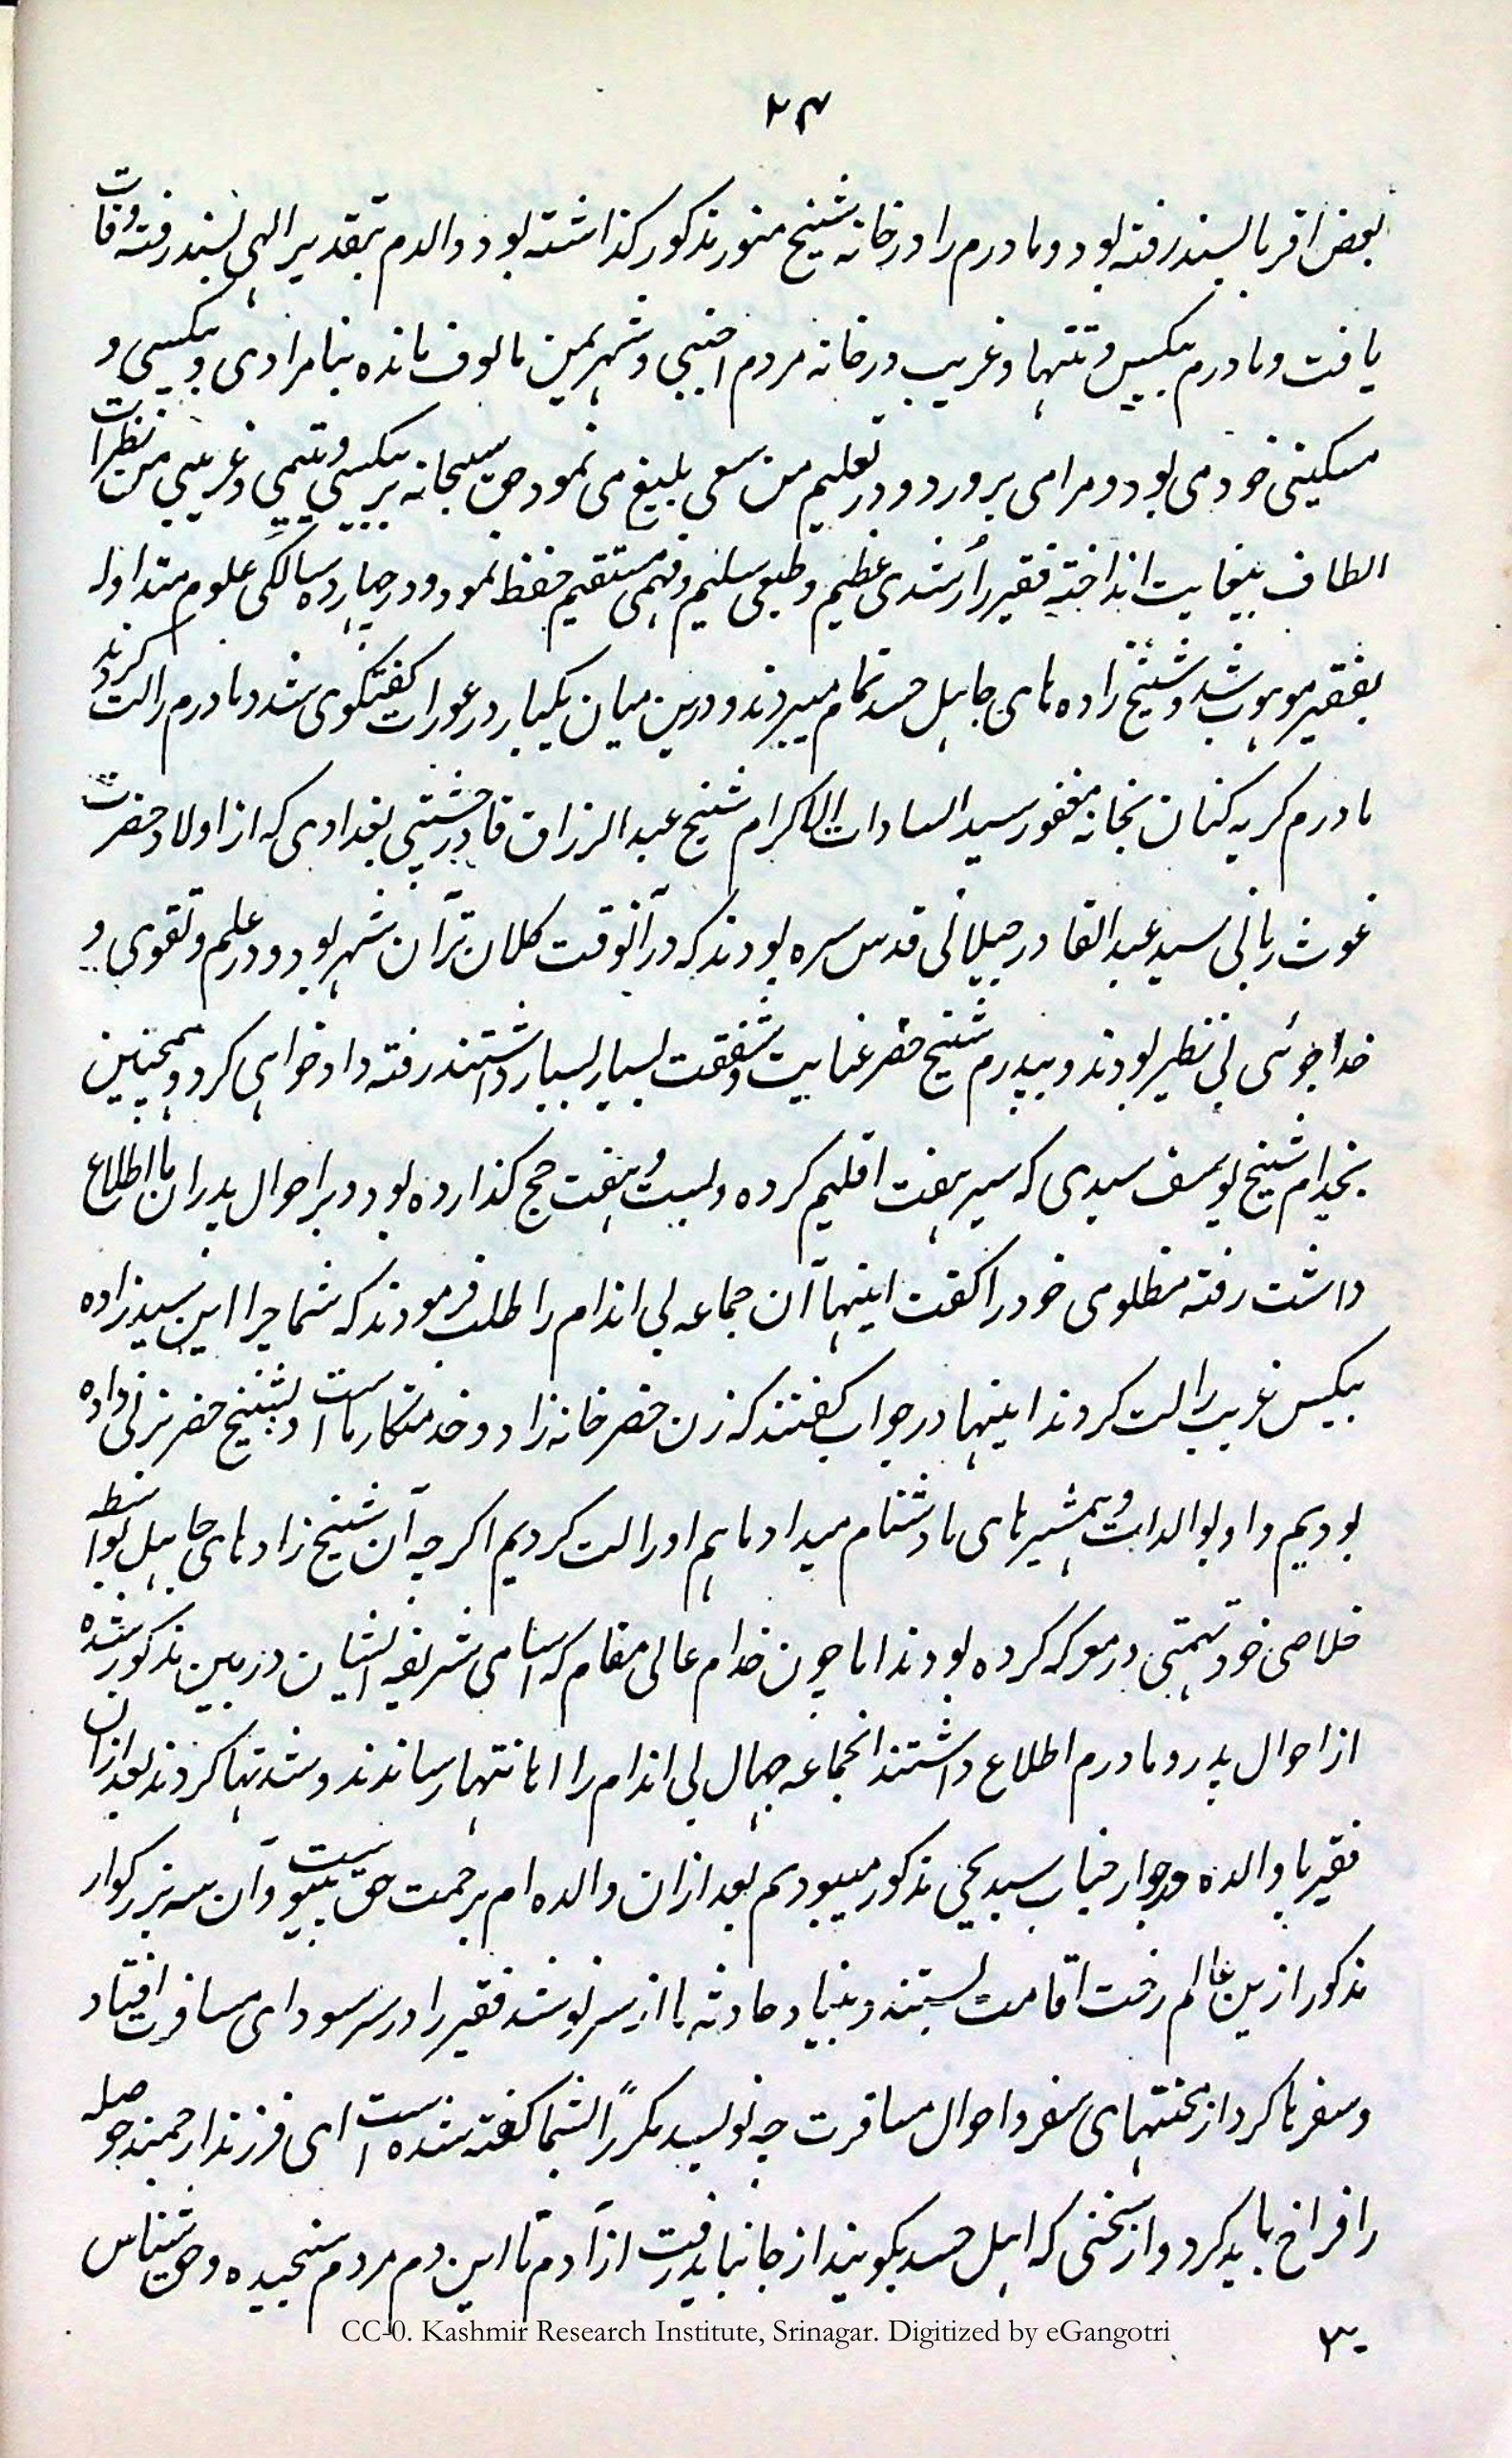 ۲۴
بعض اقربا بسند رفته بود و مادرم را در خانه شیخ منور مذکور گذاشته بود و والدم بتقدیر الهی بسند رفته وفات
یافت و مادرم بیکس و تنها و غریب در خانه مردم اجنبی و شهر یمن مالوف مانده بنامرادی و بیکسی و
مسکینی خود می بود و مرا می پرورد و در تعلیم من سعی بلیغ می نمود حق سبحانه بر بیکسی و یتیمی و غریبی من نظرات
الطاف بیغایت انداخته فقیر را رشدی عظیم و طبعی سلیم و فهمی مستقیم حفظ نمود و در چهارده سالگی علوم متداوله
بفقیر موهوب شد و شیخ زاده های جاهل حسد تمام میبردند و درین میان یکبار در عورات گفتگوی شد و مادرم را لت کردند
مادرم گریه کنان بخانه مغفور سید السادات الاکرام شیخ عبد الرزاق قادر چشتی بغدادی که از اولاد حضرت
غوث ربانی سید عبد القادر جیلانی قدس سره بودند که در آنوقت کلان تر آن شهر بود و در علم و تقوی و
خدا جوئی بی نظیر بودند و بپدرم شیخ خضر عنایت و شفقت بسیار بسیار داشتند رفته داد خواهی کرد و همچنین
بخدام شیخ یوسف سیدی که سیر هفت اقلیم کرده و بیست و هفت حج گذارده بود و بر احوال پدران ما اطلاع
داشت رفته مظلومی خود را گفت اینها آن جماعه بی اندام را طلب فرمودند که شما چرا این سید زاده
بیکس غریب را لت کردند اینها در جواب گفتند که زن خضر خانه زاد و خدمتگار ماست و بشیخ خضر بزنی داده
بودیم و او بوالدات و همشیر های ما دشنام میداد ما هم او را لت کردیم اگر چه آن شیخ زاد های جاهل بواسطه
خلاصی خود تهمتی در موکه کرده بودند اما چون خدام عالی مقام که اسامی شریفه ایشان درین مذکور شده
از احوال پدر و مادرم اطلاع داشتند انجماعه جهال بی اندام را اهانتها رساندند و شدتها کردند بعد ازان
فقیر با والده در جوار جناب سید یحیی مذکور میبودیم بعد ازان والده ام برحمت حق پیوست و آن سه بزرگوار
مذکور ازین عالم رخت اقامت بستند و بنیاد حادثه ها از سر نو شد فقیر را در سر سودای مسافرت افتاد
و سفر ها کرد از محنتهای سفر و احوال مسافرت چه نویسد مکرراً بشما گفته شده است ای فرزند ارجمند حوصله
را فراخ باید کرد و از سخنی که اهل حسد بگویند از جا نباید رفت از آدم تا این دم مردم سنجیده و حق شناس
CC-0. Kashmir Research Institute, Srinagar. Digitized by eGangotri